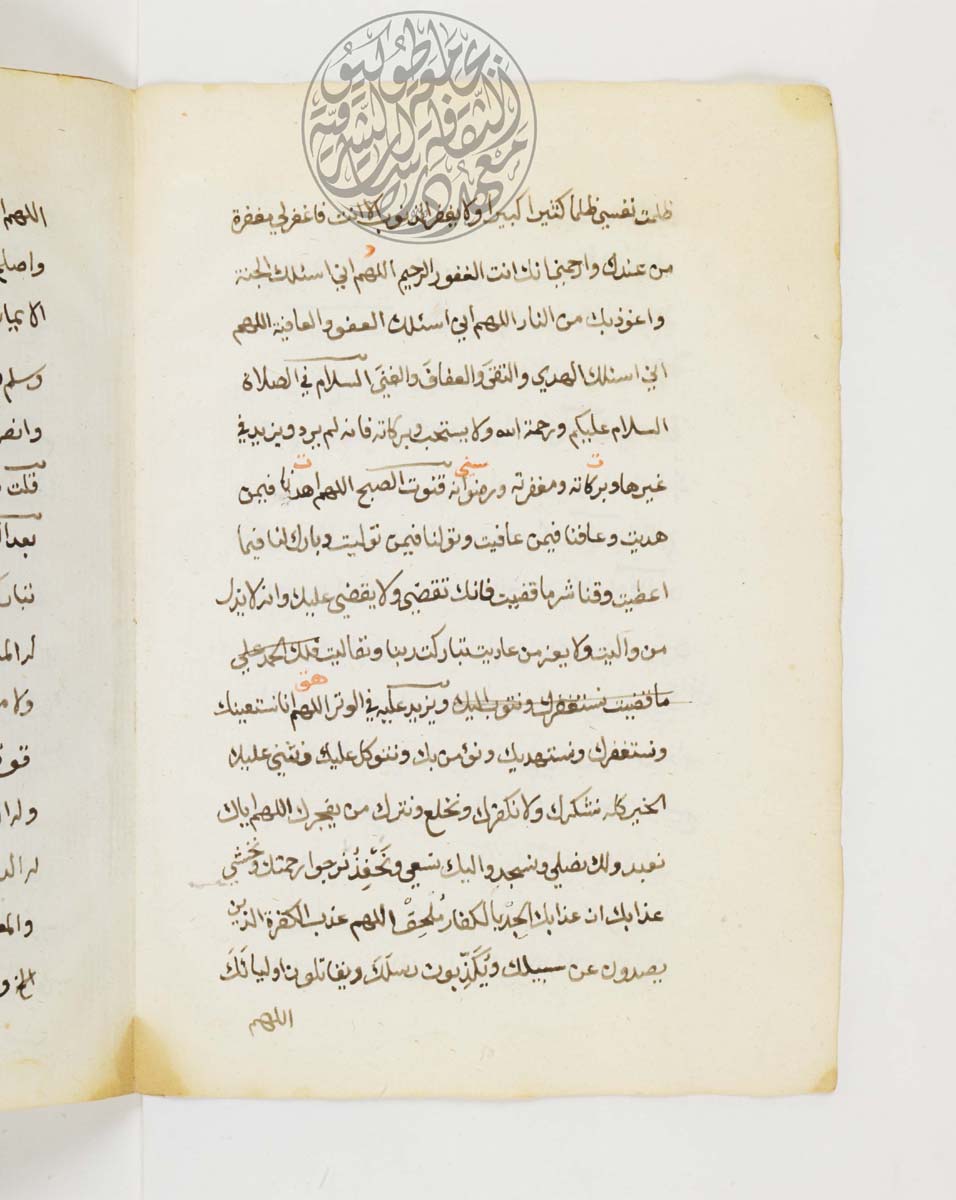 ظلمت نفسي ظلما كثيرا كبيرا ولا يغفر الذنوب الا انت فاغفر لي مغفرة
من عندك وارحمني انك انت الغفور الرحيم اللهم اني اسئلك الجنة
واعوذ بك من النار اللهم اني اسئلك العفو والعافية اللهم
اني اسئلك الهدي والتقى والعفاف والغنى السلام في الصلاة
السلام عليكم ورحمة الله ولا يستحب وبركاته فانه لم يرد ويزيد في
غيرها وبركاته ومغفرته ورضوانه قنوت الصبح اللهم اهدنا فيمن
هديت وعافنا فيمن عافيت وتولنا فيمن توليت وبارك لنا فيما
اعطيت وقنا شر ما قضيت فانك تقضي ولا يقضي عليك وانه لا يذل
من واليت ولا يعز من عاديت تباركت ربنا وتعاليت فلك الحمد علي
ما قضيت نستغفرك ونتوب اليك ويزيد عليه في الوتر اللهم انا نستعينك
ونستغفرك ونستهديك ونؤمن بك ونتوكل عليك ونثني عليك
الخير كله نشكرك ولا نكفرك ونخلع ونترك من يفجرك اللهم اياك
نعبد ولك نصلي ونسجد واليك نسعي ونحفد نرجوا رحمتك ونخشي
عذابك ان عذابك الجد بالكفار ملحق اللهم عذب الكفرة الذين
يصدون عن سبيلك ويكذبون رسلك ويقاتلون اولياءك
اللهم
اللهم
واصلح
الايمان
وسلم
قلت
ولا
والمع
الخ و
جامعة طوكيو
معهد دراسات الثقافة الشرقية